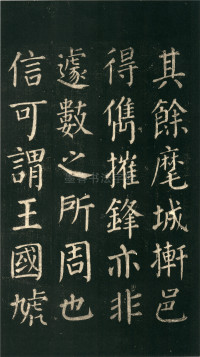 其餘麾城㯹邑
得儁摧鋒亦非
遽數之所周也
信可謂王國虓